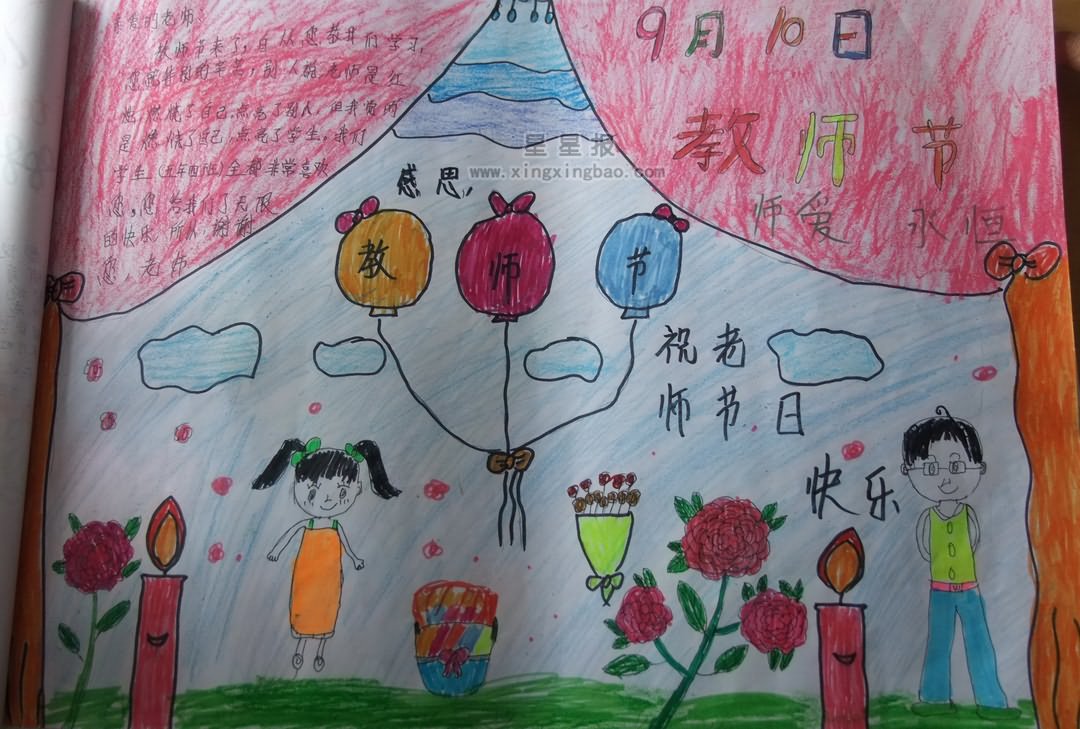 亲爱的老师：
教师节来了，自从您教我们学习，
人说老师是红
烛，燃烧了自己，点亮了别人，但我觉
是燃烧了自己，点亮了学生，我们
学生（五年四班）全都非常喜欢
您，您给我们了无限
的快乐，所以，谢谢
您，老师
9月10日
教师节
师爱 永恒
星星报
www.xingxingbao.com
感恩，
教 师 节
祝老
师节日
快乐